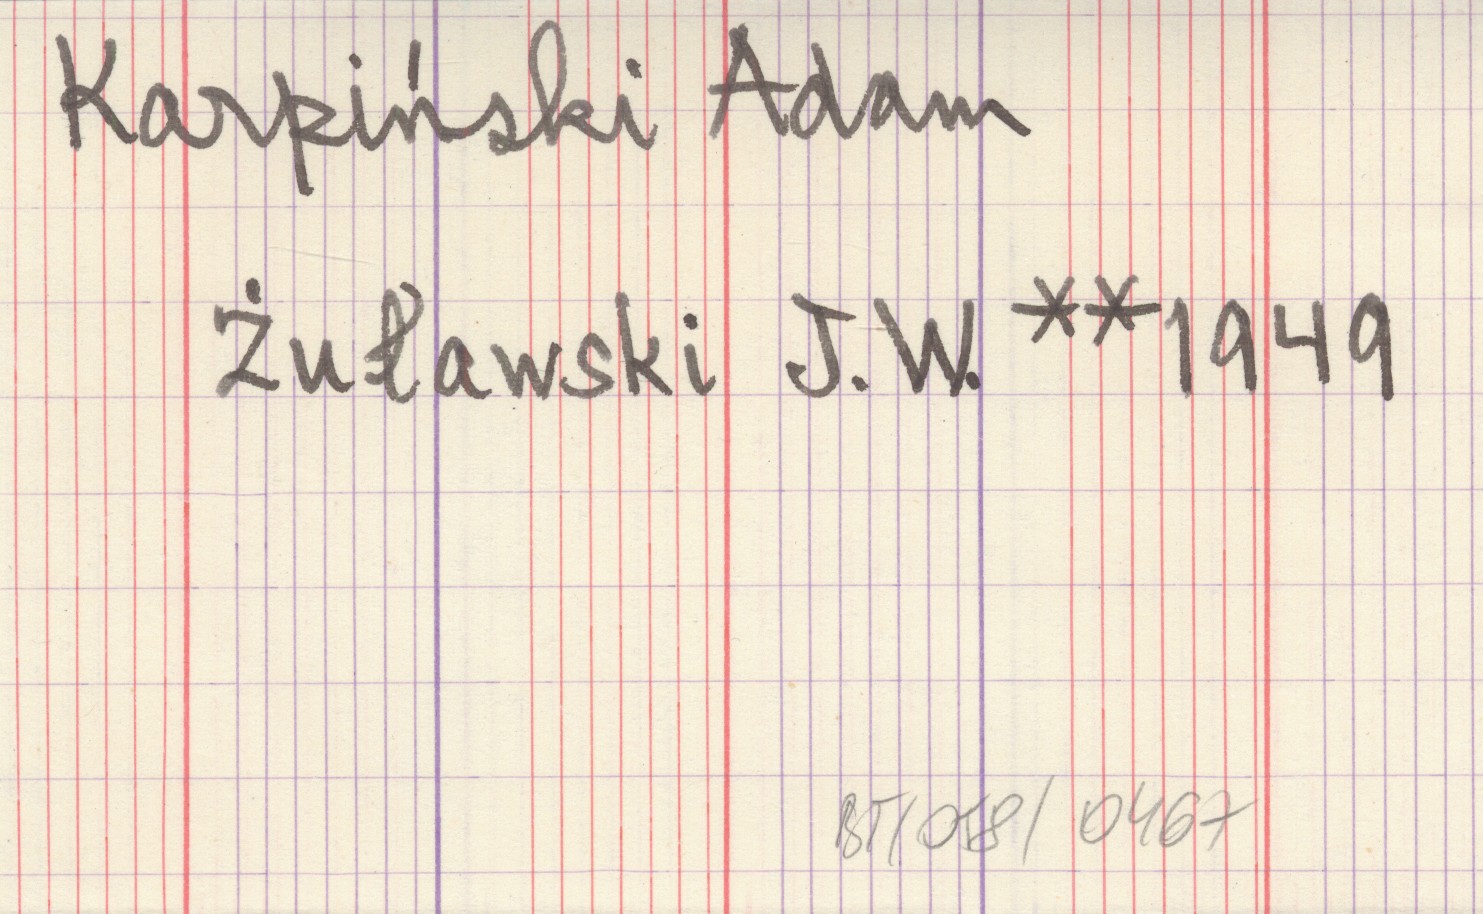 Karpiński Adam
Żuławski J.W. **1949
BT/058/ 0467